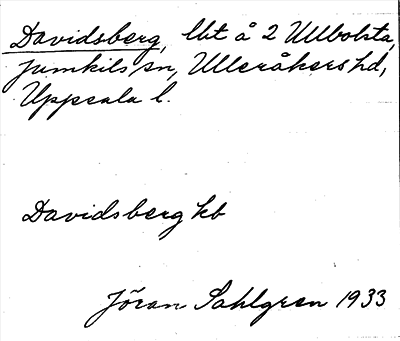 Davidsberg, lht å 2 Ullbolsta,
Jumkils sn, Ulleråkers hd,
Uppsala l.
Davidsberg kb
Jöran Sahlgren 1933